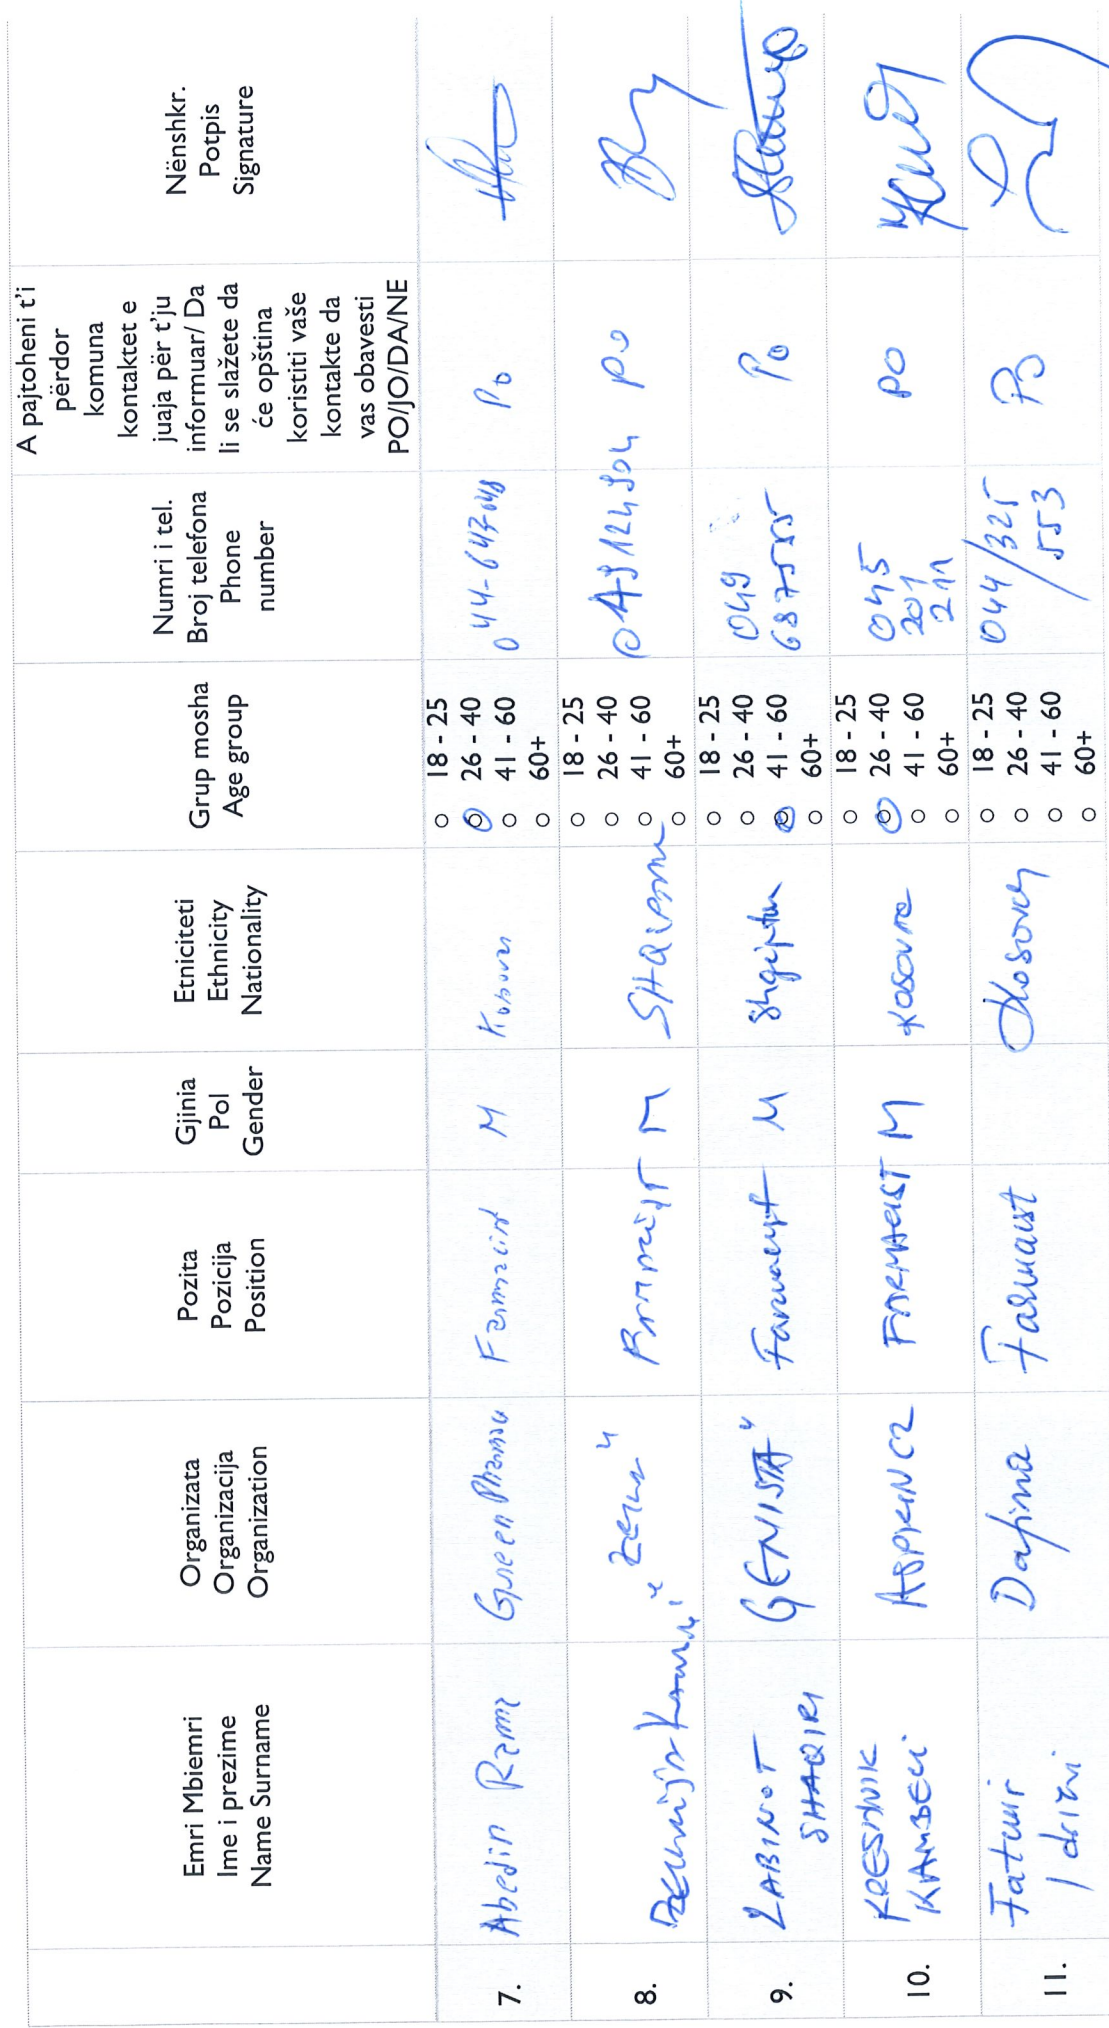 Emri Mbiemri
Ime i prezime
Name Surname
Organizata
Organizacija
Organization
Pozita
Pozicija
Position
Gjinia
Pol
Gender
Etniciteti
Ethnicity
Nationality
Grup mosha
Age group
Numri i tel.
Broj telefona
Phone
number
A pajtoheni t'i
përdor
komuna
kontaktet e
juaja për t'ju
informuar/ Da
li se slažete da
će opština
koristiti vaše
kontakte da
vas obavesti
PO/JO/DA/NE
Nënshkr.
Potpis
Signature
7.
Abedin Rama
Green Pharma
Farmacist
M
Kosovar
18 - 25
26 - 40
41 - 60
60+
044-647048
Po
8.
"Zeus"
M
18 - 25
26 - 40
41 - 60
60+
po
9.
LABINOT
SHAQIRI
GENISTA"
Farmacist
M
Shqiptar
18 - 25
26 - 40
41 - 60
60+
049
687555
Po
10.
KRESHNIK
KAMBERI
FARMACIST
M
Kosovar
18 - 25
26 - 40
41 - 60
60+
045
201
211
PO
11.
Fatmir
Idrizi
Dafina
Farmacist
Kosovar
18 - 25
26 - 40
41 - 60
60+
044/325
553
Po